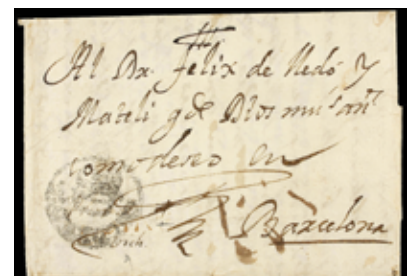 Al Dr. Felix de Nedó y
Mateli gde Dios ms. ans.
como deseo en
Barcelona